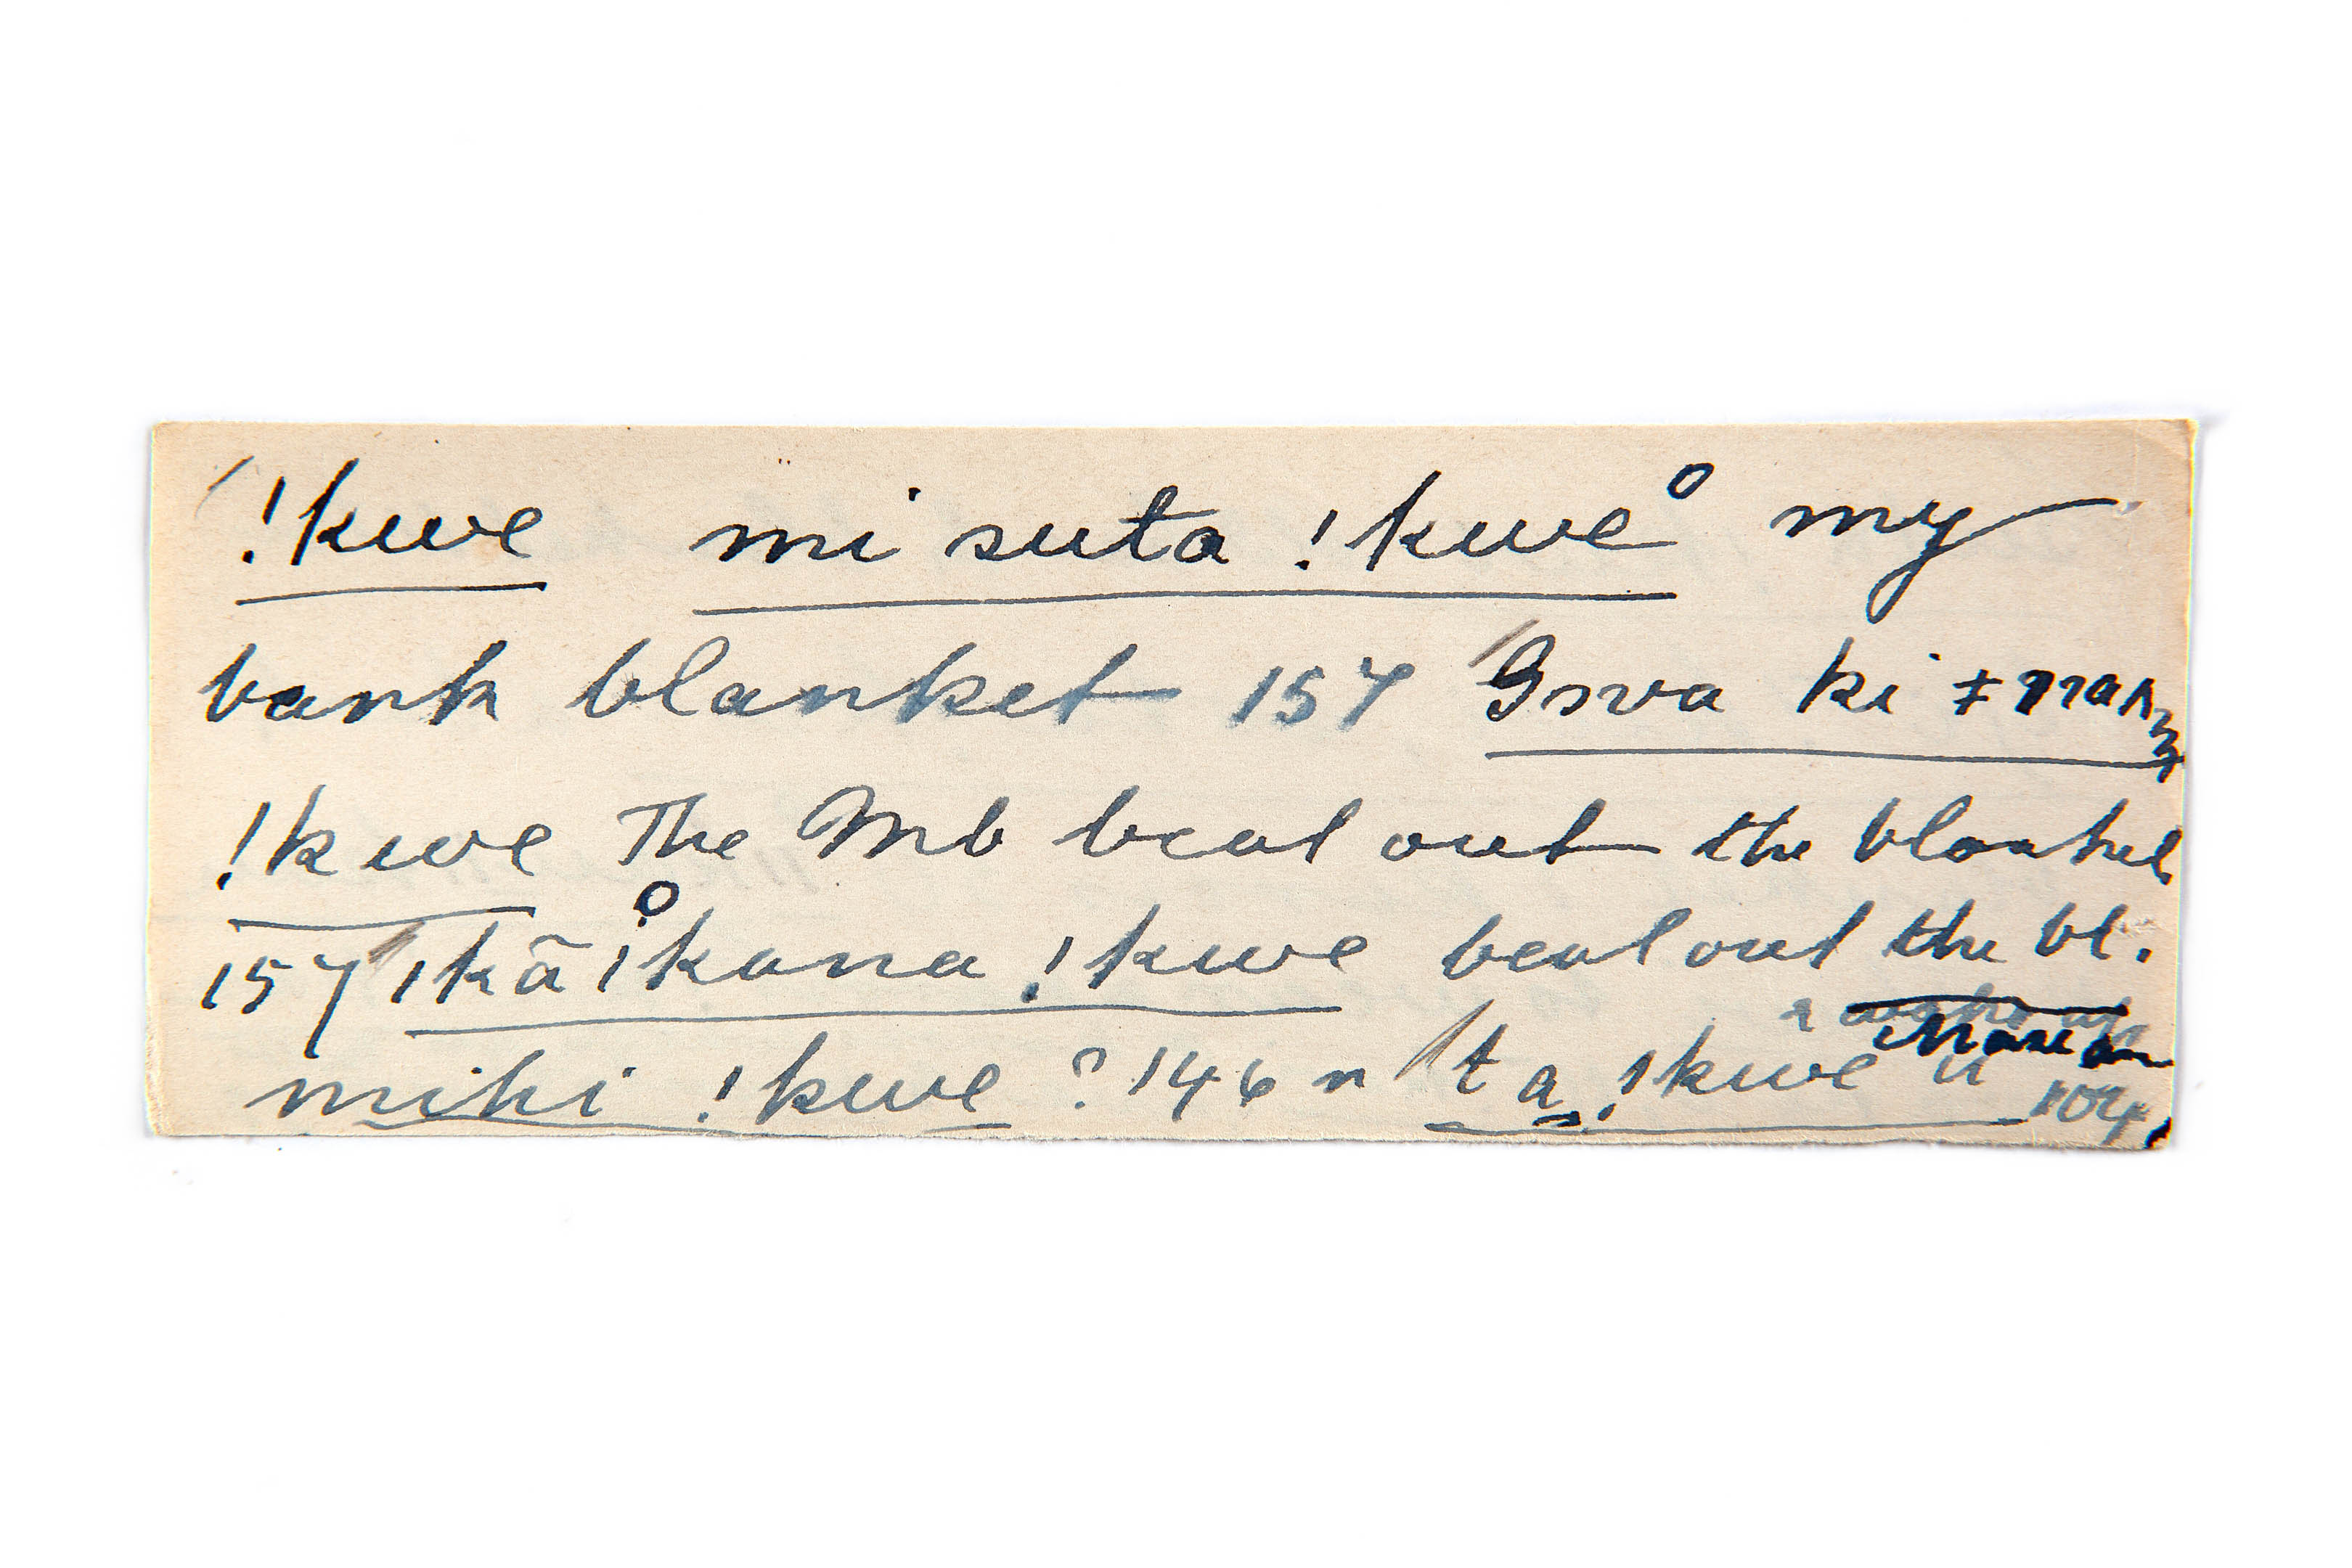 !kwe mi suta !kwe° my
bark blanket 157 Gova ki ǂ
!kwe The Mb beat out the blanket
157 ǀkāǀkana !kwe beat out the bl.
mihi !kwe ? 146 n ta !kwe u 104